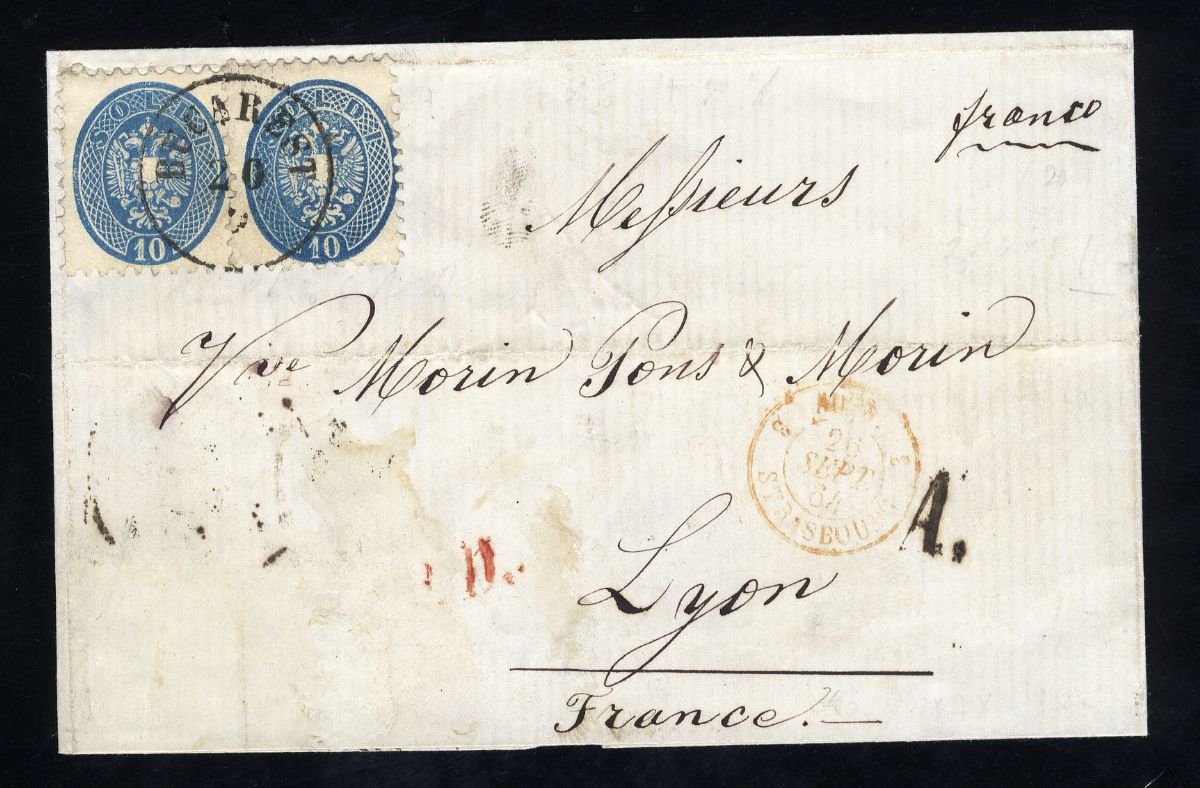 SOLDI SOLDI
10 10
BUCAREST
20
9
franco
Messieurs
Vve Morin Pons & Morin
26
SEPT.
64
STRASBOURG
A.
Lyon
France.